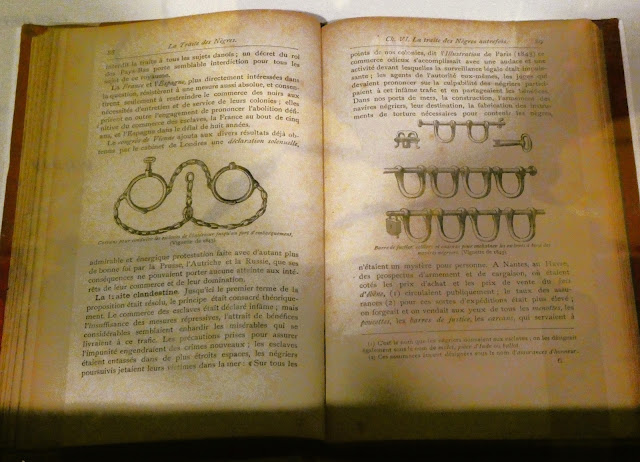 88
La Traite des Nègres.
interdit la traite à tous les sujets danois; un décret du roi
des Pays-Bas porte semblable interdiction pour tous les
sujets de ce royaume.
La France et l'Espagne, plus directement intéressées dans
la question, résistèrent à une mesure aussi absolue, et consen-
tirent seulement à restreindre le commerce des noirs aux
nécessités d'extraction et de service de leurs colonies; elles
prirent en outre l'engagement de prononcer l'abolition défi-
nitive du commerce des esclaves, la France au bout de cinq
ans, et l'Espagne dans le délai de huit années.
Le congrès de Vienne ajouta aux divers résultats déjà ob-
tenus par le cabinet de Londres une déclaration solennelle,
(Vignette de 1843).
admirable et énergique protestation faite avec d'autant plus
de bonne foi par la France, l'Autriche et la Russie, que ses
conséquences ne pouvaient porter aucune atteinte aux inté-
rêts de leur commerce et de leur domination.
La traite clandestine. Jusqu'ici le premier terme de la
proposition était résolu, le principe était consacré théorique-
ment. Le commerce des esclaves était déclaré infâme; mais
l'insuffisance des mesures répressives, l'attrait de bénéfices
considérables semblaient enhardir les misérables qui se
livraient à ce trafic. Les précautions prises pour assurer
l'impunité engendraient des crimes nouveaux; les esclaves
étaient entassés dans de plus étroits espaces, les négriers
poursuivis jetaient leurs victimes dans la mer: « Sur tous les
Ch. VI. La traite des Nègres autrefois.
89
points de nos colonies, dit l'Illustration de Paris (1843) ce
commerce odieux s'accomplissait avec une audace et une
activité devant lesquelles la surveillance légale était impuis-
sante; les agents de l'autorité eux-mêmes, les juges qui
devaient prononcer sur la culpabilité des négriers partici-
paient à cet infâme trafic et en partageaient les bénéfices.
Dans nos ports de mers, la construction, l'armement des
navires négriers, leur destination, la fabrication des instru-
ments de torture nécessaires pour contenir les nègres,
Barre de justice, colliers et cadenas pour enchaîner les esclaves à bord des
navires négriers. (Vignette de 1843).
n'étaient un mystère pour personne. A Nantes, au Havre,
des prospectus d'armement et de cargaison, où étaient
cotés les prix d'achat et les prix de vente du bois
d'ébène, (1) circulaient publiquement; le taux des assu-
rances (2) pour ces sortes d'expéditions était plus élevé;
on forgeait et on vendait aux yeux de tous les menottes, les
poucettes, les barres de justice, les carcans, qui serraient à
(1) C'est le nom que les négriers donnaient aux esclaves; on les désignait
également sous le nom de mulet, pièce d'Inde ou ballot.
(2) Ces assurances étaient désignées sous le nom d'assurances d'honneur.
6.